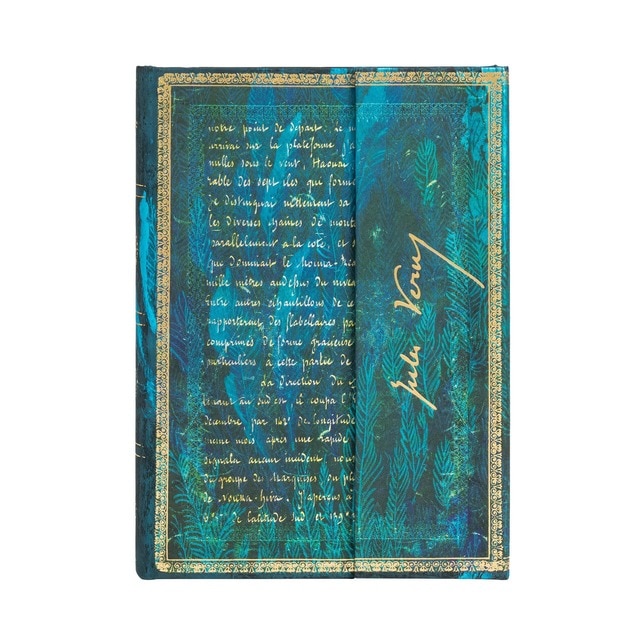 notre point de départ. Le
arrivai sur la plateforme, j'a
milles sous le vent, Haouaï
rable des sept iles qui forme
Je distinguai nettement sa
les diverses chaines de mont
parallèlement a la cote, et s
que dominait le Mouna-Rea
mille mètres audessus du nivea
Entre autres échantillons de ce
rapportèrent des flabellaires pa
comprimés de forme gracieuse
particuliers a cette partie de
La direction du
au sud est. il coupa l'E
décembre par 142° de longitude
meme mois après une rapide
signala aucun incident, nous
du groupe des Marquises. à pl
de Nouka-hiva. J'aperçus a
de latitude sud et 139°
Jules Verne